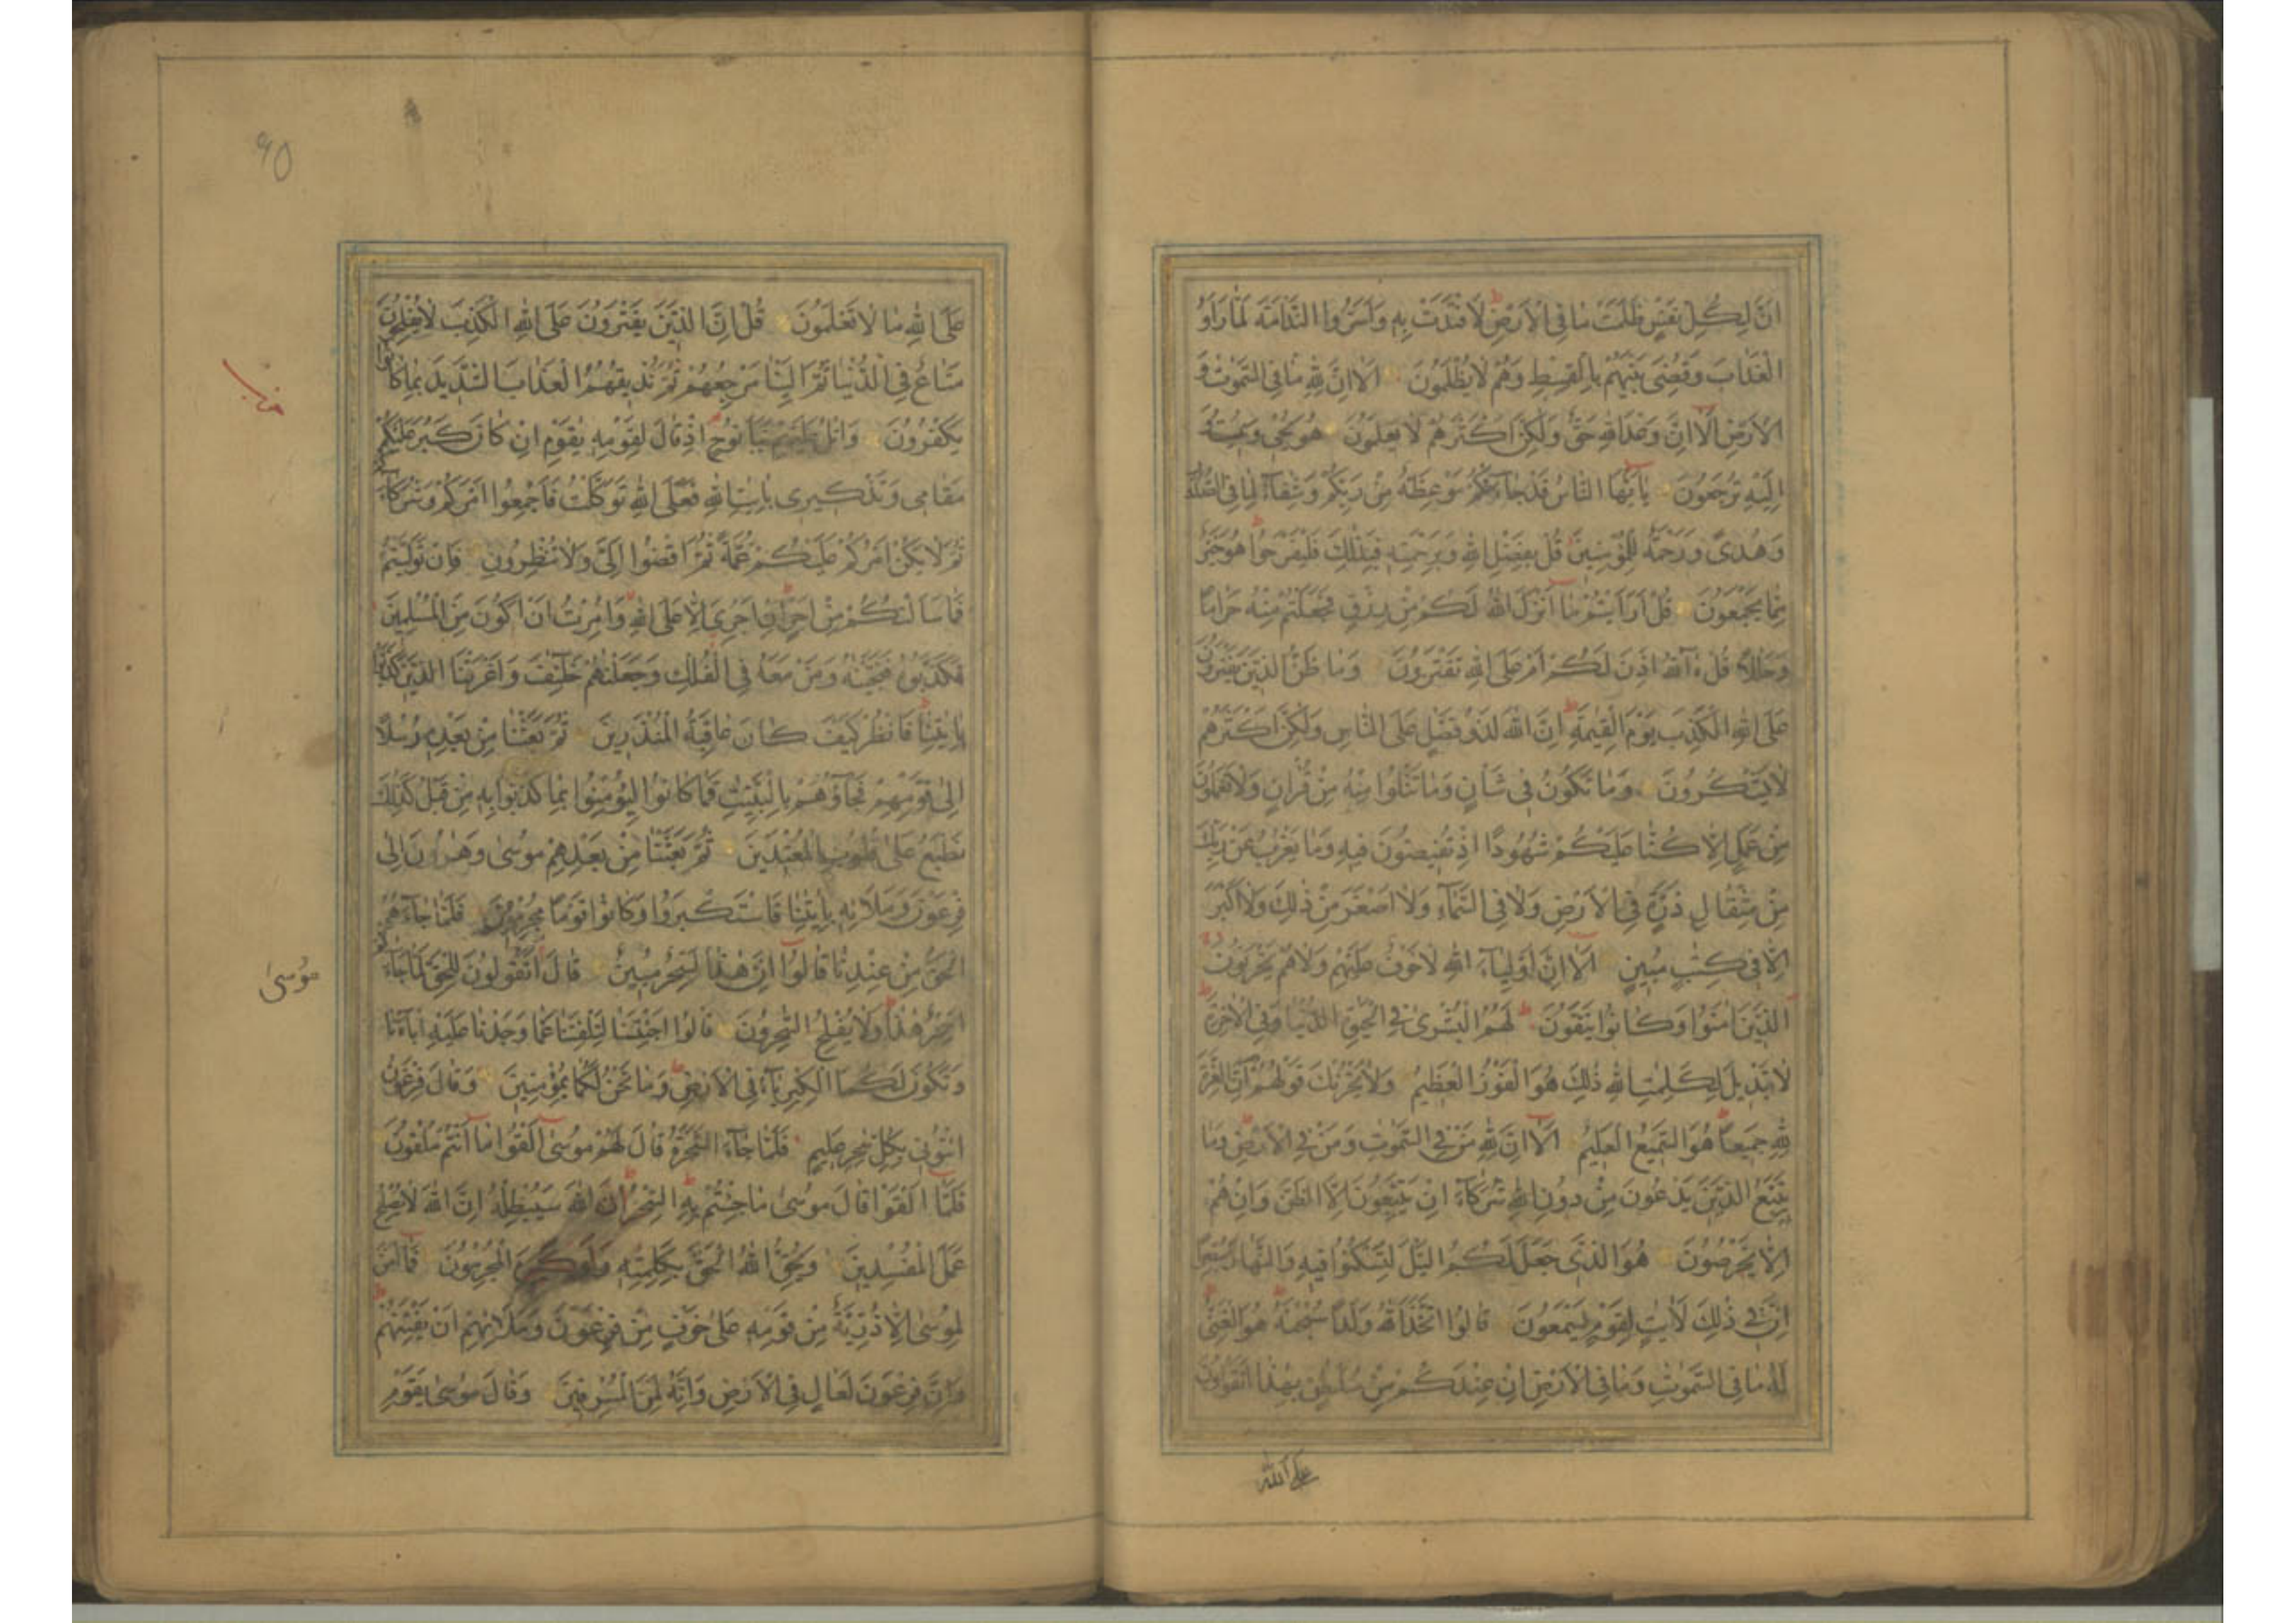 انَّ لِكُلِّ نَفْسٍ ظَلَمَتْ مَا فِي الْاَرْضِ لَافْتَدَتْ بِهِ وَاَسَرُّوا النَّدَامَةَ لَمَّا رَاَوُ
الْعَذَابَ وَقُضِيَ بَيْنَهُمْ بِالْقِسْطِ وَهُمْ لَا يُظْلَمُونَ اَلَا اِنَّ لِلّٰهِ مَا فِي السَّمٰوٰتِ وَ
الْاَرْضِ اَلَا اِنَّ وَعْدَ اللّٰهِ حَقٌّ وَلٰكِنَّ اَكْثَرَهُمْ لَا يَعْلَمُونَ هُوَ يُحْيٖ وَيُمِيتُ وَ
اِلَيْهِ تُرْجَعُونَ يَا اَيُّهَا النَّاسُ قَدْ جَاءَتْكُمْ مَوْعِظَةٌ مِنْ رَبِّكُمْ وَشِفَاءٌ لِمَا فِي الصُّدُورِ
وَهُدًى وَرَحْمَةٌ لِلْمُؤْمِنِينَ قُلْ بِفَضْلِ اللّٰهِ وَبِرَحْمَتِهِ فَبِذٰلِكَ فَلْيَفْرَحُوا هُوَ خَيْرٌ
مِمَّا يَجْمَعُونَ قُلْ اَرَاَيْتُمْ مَا اَنْزَلَ اللّٰهُ لَكُمْ مِنْ رِزْقٍ فَجَعَلْتُمْ مِنْهُ حَرَامًا
وَحَلَالًا قُلْ ءٰاللّٰهُ اَذِنَ لَكُمْ اَمْ عَلَى اللّٰهِ تَفْتَرُونَ وَمَا ظَنُّ الَّذِينَ يَفْتَرُونَ
عَلَى اللّٰهِ الْكَذِبَ يَوْمَ الْقِيٰمَةِ اِنَّ اللّٰهَ لَذُو فَضْلٍ عَلَى النَّاسِ وَلٰكِنَّ اَكْثَرَهُمْ
لَا يَشْكُرُونَ وَمَا تَكُونُ فِي شَأْنٍ وَمَا تَتْلُوا مِنْهُ مِنْ قُرْاٰنٍ وَلَا تَعْمَلُونَ
مِنْ عَمَلٍ اِلَّا كُنَّا عَلَيْكُمْ شُهُودًا اِذْ تُفِيضُونَ فِيهِ وَمَا يَعْزُبُ عَنْ رَبِّكَ
مِنْ مِثْقَالِ ذَرَّةٍ فِي الْاَرْضِ وَلَا فِي السَّمَاءِ وَلَا اَصْغَرَ مِنْ ذٰلِكَ وَلَا اَكْبَرَ
اِلَّا فِي كِتٰبٍ مُبِينٍ اَلَا اِنَّ اَوْلِيَاءَ اللّٰهِ لَا خَوْفٌ عَلَيْهِمْ وَلَا هُمْ يَحْزَنُونَ
الَّذِينَ اٰمَنُوا وَكَانُوا يَتَّقُونَ لَهُمُ الْبُشْرٰى فِي الْحَيٰوةِ الدُّنْيَا وَفِي الْاٰخِرَةِ
لَا تَبْدِيلَ لِكَلِمٰتِ اللّٰهِ ذٰلِكَ هُوَ الْفَوْزُ الْعَظِيمُ وَلَا يَحْزُنْكَ قَوْلُهُمْ اِنَّ الْعِزَّةَ
لِلّٰهِ جَمِيعًا هُوَ السَّمِيعُ الْعَلِيمُ اَلَا اِنَّ لِلّٰهِ مَنْ فِي السَّمٰوٰتِ وَمَنْ فِي الْاَرْضِ وَمَا
يَتَّبِعُ الَّذِينَ يَدْعُونَ مِنْ دُونِ اللّٰهِ شُرَكَاءَ اِنْ يَتَّبِعُونَ اِلَّا الظَّنَّ وَاِنْ هُمْ
اِلَّا يَخْرُصُونَ هُوَ الَّذِي جَعَلَ لَكُمُ الَّيْلَ لِتَسْكُنُوا فِيهِ وَالنَّهَارَ مُبْصِرًا
اِنَّ فِي ذٰلِكَ لَاٰيٰتٍ لِقَوْمٍ يَسْمَعُونَ قَالُوا اتَّخَذَ اللّٰهُ وَلَدًا سُبْحٰنَهُ هُوَ الْغَنِيُّ
لَهُ مَا فِي السَّمٰوٰتِ وَمَا فِي الْاَرْضِ اِنْ عِنْدَكُمْ مِنْ سُلْطٰنٍ بِهٰذَا اَتَقُولُونَ
عَلَى اللّٰهِ
٩٥
عَلَى اللّٰهِ مَا لَا تَعْلَمُونَ قُلْ اِنَّ الَّذِينَ يَفْتَرُونَ عَلَى اللّٰهِ الْكَذِبَ لَا يُفْلِحُونَ
مَتَاعٌ فِي الدُّنْيَا ثُمَّ اِلَيْنَا مَرْجِعُهُمْ ثُمَّ نُذِيقُهُمُ الْعَذَابَ الشَّدِيدَ بِمَا كَانُوا
يَكْفُرُونَ وَاتْلُ عَلَيْهِمْ نَبَاَ نُوحٍ اِذْ قَالَ لِقَوْمِهِ يٰقَوْمِ اِنْ كَانَ كَبُرَ عَلَيْكُمْ
مَقَامِي وَتَذْكِيرِي بِاٰيٰتِ اللّٰهِ فَعَلَى اللّٰهِ تَوَكَّلْتُ فَاَجْمِعُوا اَمْرَكُمْ وَشُرَكَاءَكُمْ
ثُمَّ لَا يَكُنْ اَمْرُكُمْ عَلَيْكُمْ غُمَّةً ثُمَّ اقْضُوا اِلَيَّ وَلَا تُنْظِرُونِ فَاِنْ تَوَلَّيْتُمْ
فَمَا سَاَلْتُكُمْ مِنْ اَجْرٍ اِنْ اَجْرِيَ اِلَّا عَلَى اللّٰهِ وَاُمِرْتُ اَنْ اَكُونَ مِنَ الْمُسْلِمِينَ
فَكَذَّبُوهُ فَنَجَّيْنٰهُ وَمَنْ مَعَهُ فِي الْفُلْكِ وَجَعَلْنٰهُمْ خَلٰئِفَ وَاَغْرَقْنَا الَّذِينَ كَذَّبُوا
بِاٰيٰتِنَا فَانْظُرْ كَيْفَ كَانَ عَاقِبَةُ الْمُنْذَرِينَ ثُمَّ بَعَثْنَا مِنْ بَعْدِهِ رُسُلًا
اِلٰى قَوْمِهِمْ فَجَاؤُهُمْ بِالْبَيِّنٰتِ فَمَا كَانُوا لِيُؤْمِنُوا بِمَا كَذَّبُوا بِهِ مِنْ قَبْلُ كَذٰلِكَ
نَطْبَعُ عَلٰى قُلُوبِ الْمُعْتَدِينَ ثُمَّ بَعَثْنَا مِنْ بَعْدِهِمْ مُوسٰى وَهٰرُونَ اِلٰى
فِرْعَوْنَ وَمَلَائِهِ بِاٰيٰتِنَا فَاسْتَكْبَرُوا وَكَانُوا قَوْمًا مُجْرِمِينَ فَلَمَّا جَاءَهُمُ
الْحَقُّ مِنْ عِنْدِنَا قَالُوا اِنَّ هٰذَا لَسِحْرٌ مُبِينٌ قَالَ اَتَقُولُونَ لِلْحَقِّ لَمَّا جَاءَكُمْ
مُوسٰى
اَسِحْرٌ هٰذَا وَلَا يُفْلِحُ السّٰحِرُونَ قَالُوا اَجِئْتَنَا لِتَلْفِتَنَا عَمَّا وَجَدْنَا عَلَيْهِ اٰبَاءَنَا
وَتَكُونَ لَكُمَا الْكِبْرِيَاءُ فِي الْاَرْضِ وَمَا نَحْنُ لَكُمَا بِمُؤْمِنِينَ وَقَالَ فِرْعَوْنُ
ائْتُونِي بِكُلِّ سٰحِرٍ عَلِيمٍ فَلَمَّا جَاءَ السَّحَرَةُ قَالَ لَهُمْ مُوسٰى اَلْقُوا مَا اَنْتُمْ مُلْقُونَ
فَلَمَّا اَلْقَوْا قَالَ مُوسٰى مَا جِئْتُمْ بِهِ السِّحْرُ اِنَّ اللّٰهَ سَيُبْطِلُهُ اِنَّ اللّٰهَ لَا يُصْلِحُ
عَمَلَ الْمُفْسِدِينَ وَيُحِقُّ اللّٰهُ الْحَقَّ بِكَلِمٰتِهِ وَلَوْ كَرِهَ الْمُجْرِمُونَ فَمَا اٰمَنَ
لِمُوسٰى اِلَّا ذُرِّيَّةٌ مِنْ قَوْمِهِ عَلٰى خَوْفٍ مِنْ فِرْعَوْنَ وَمَلَائِهِمْ اَنْ يَفْتِنَهُمْ
وَاِنَّ فِرْعَوْنَ لَعَالٍ فِي الْاَرْضِ وَاِنَّهُ لَمِنَ الْمُسْرِفِينَ وَقَالَ مُوسٰى يٰقَوْمِ